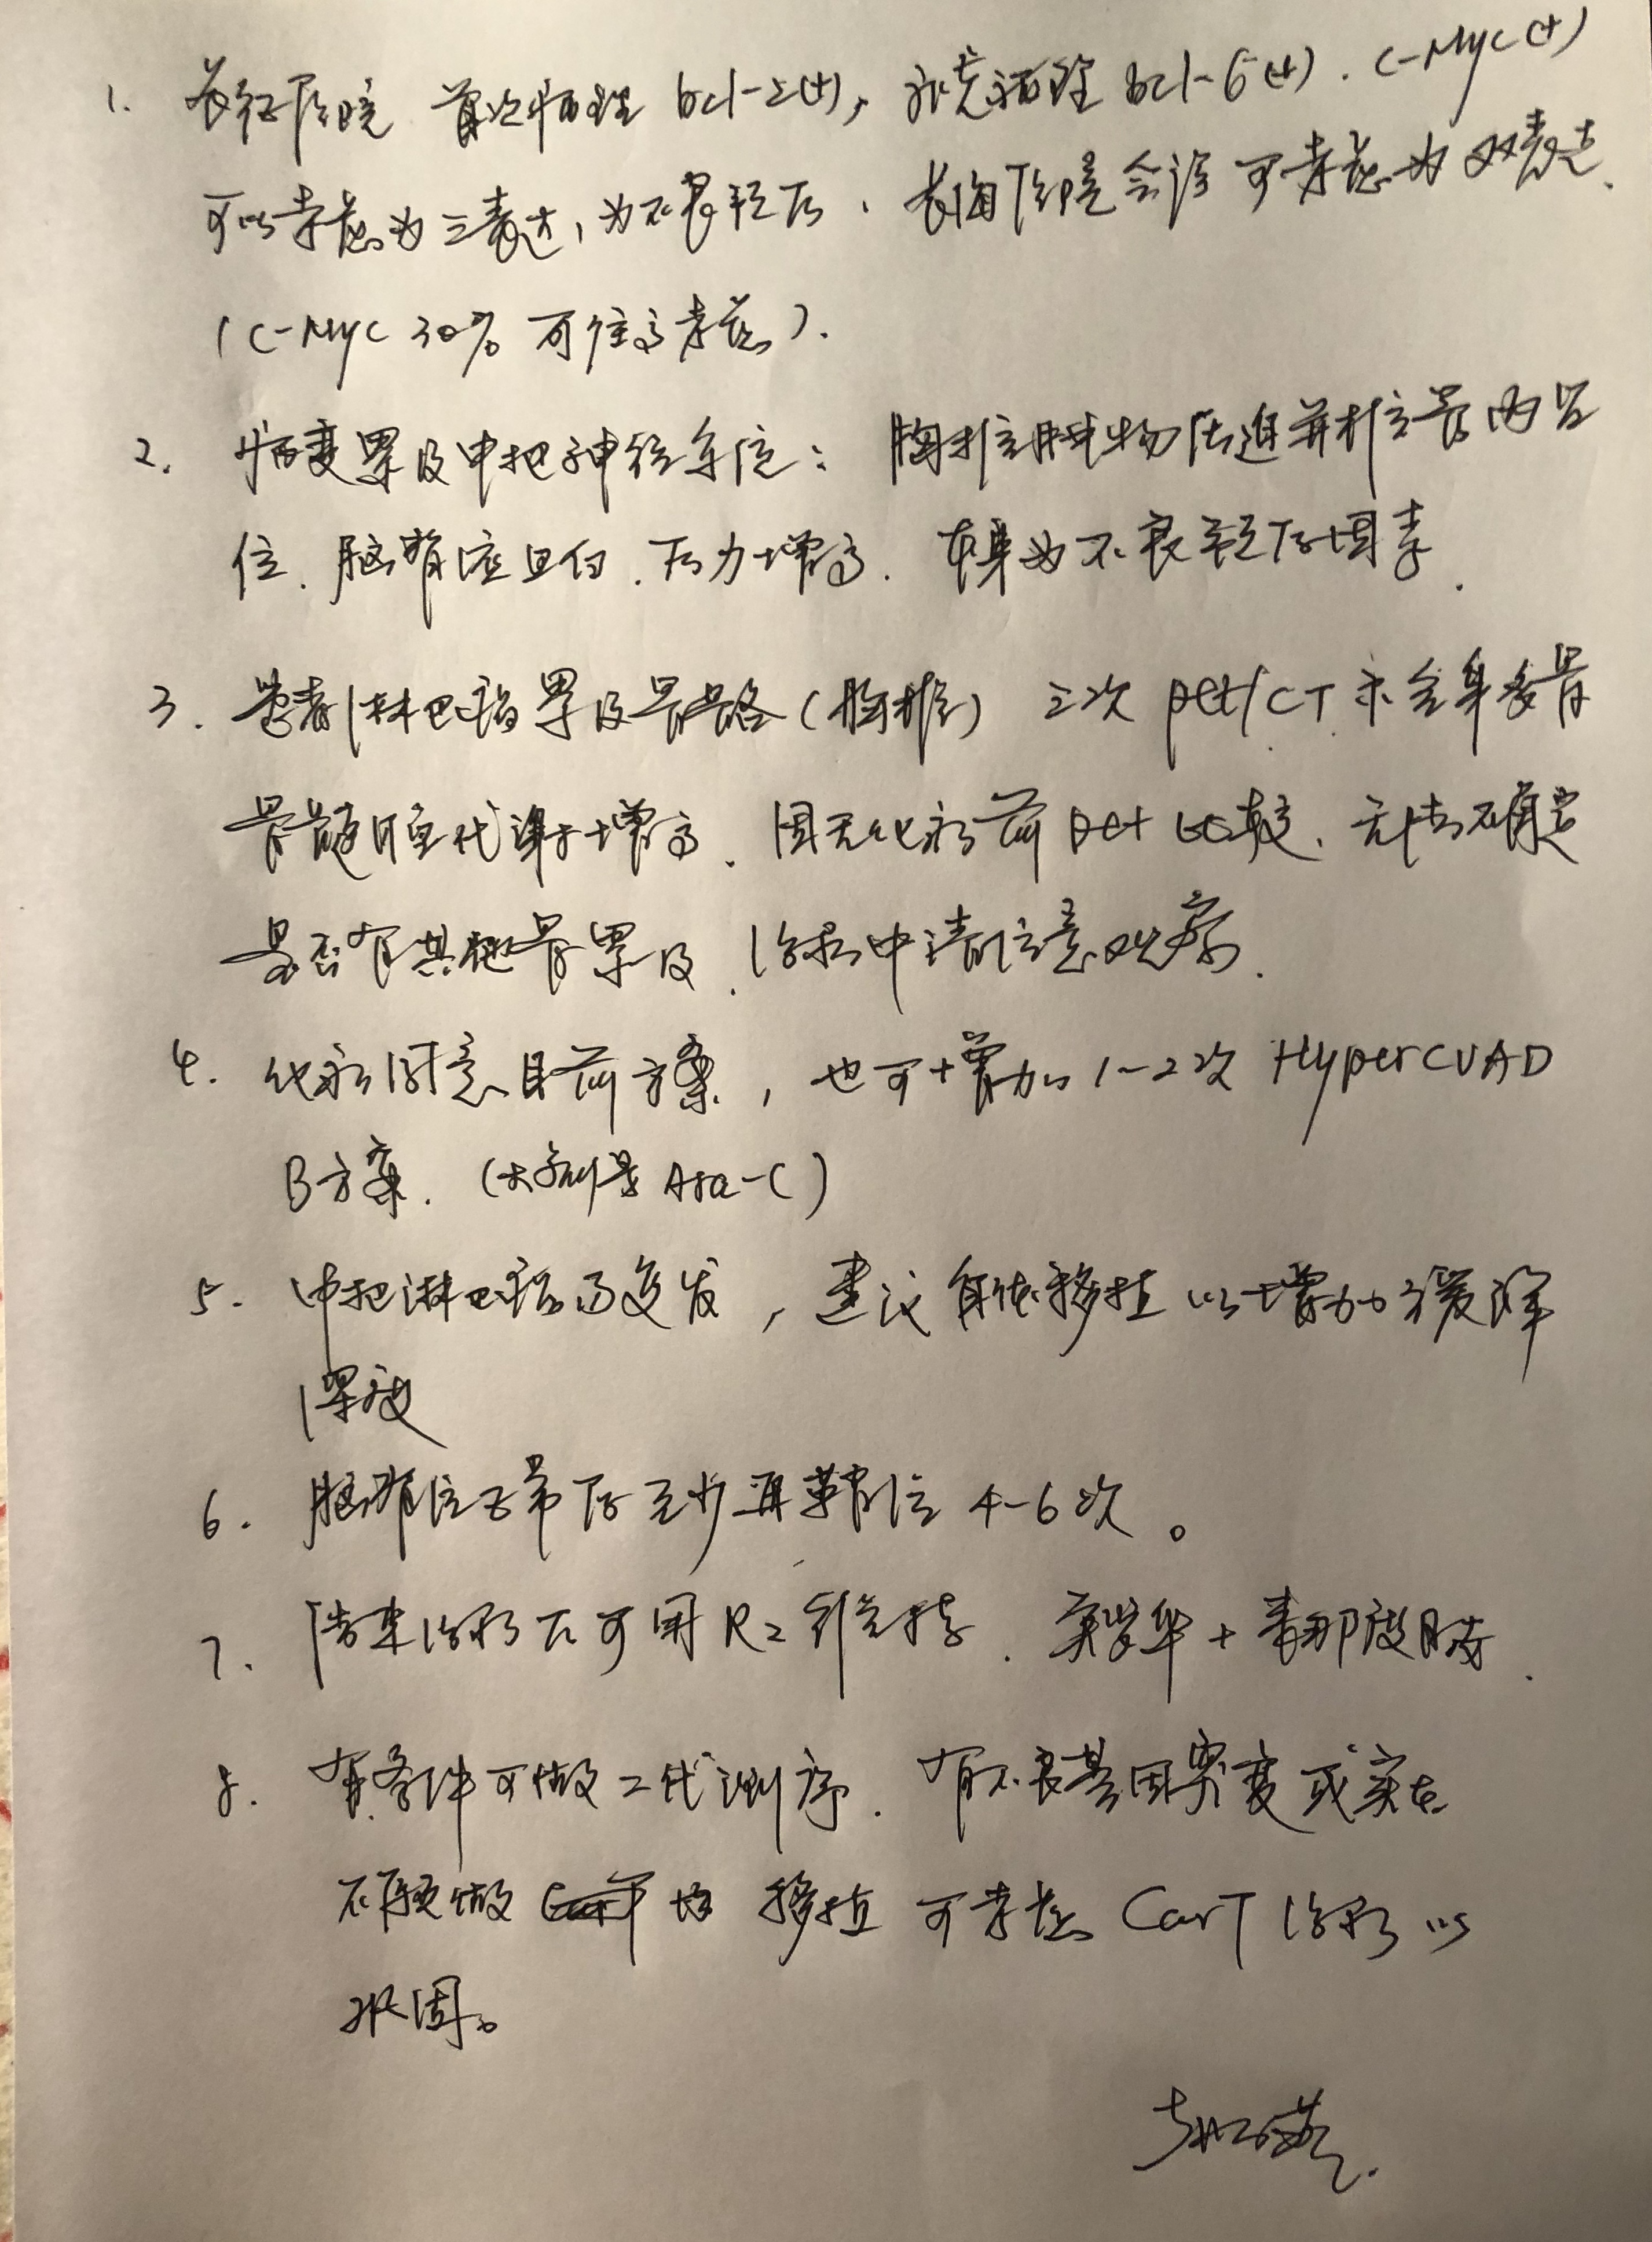 1. 长征医院 首次病理 bcl-2(+), 病理 bcl-6(+). C-Myc(+)
可以考虑为三表达, 为不良预后. 长海医院会诊 可考虑为 双表达.
(C-Myc 30% 可往高考虑).
2. 病变累及中枢神经系统: 胸椎肿物压迫并椎管内占
位. 脑脊液蛋白. 压力增高. 本身为不良预后因素.
3. 患者淋巴瘤累及骨骼(胸椎) 三次 pet/CT 示全身多骨
骨髓腔代谢增高. 因无化疗前 pet 比较. 无法确定
是否有其他骨累及. 治疗中请注意观察.
4. 化疗同意目前方案, 也可增加 1-2次 HyperCVAD
B方案. (大剂量 Ara-C)
5. 中枢淋巴瘤易复发, 建议自体移植 以增加缓解
深度
6. 脑脊液正常后至少再鞘注 4-6次。
7. 结束治疗后可用 R2 维持. 美罗华 + 来那度胺.
8. 有条件可做二代测序. 有不良基因突变或实在
不愿做 移植 可考虑 CarT 治疗以
巩固。